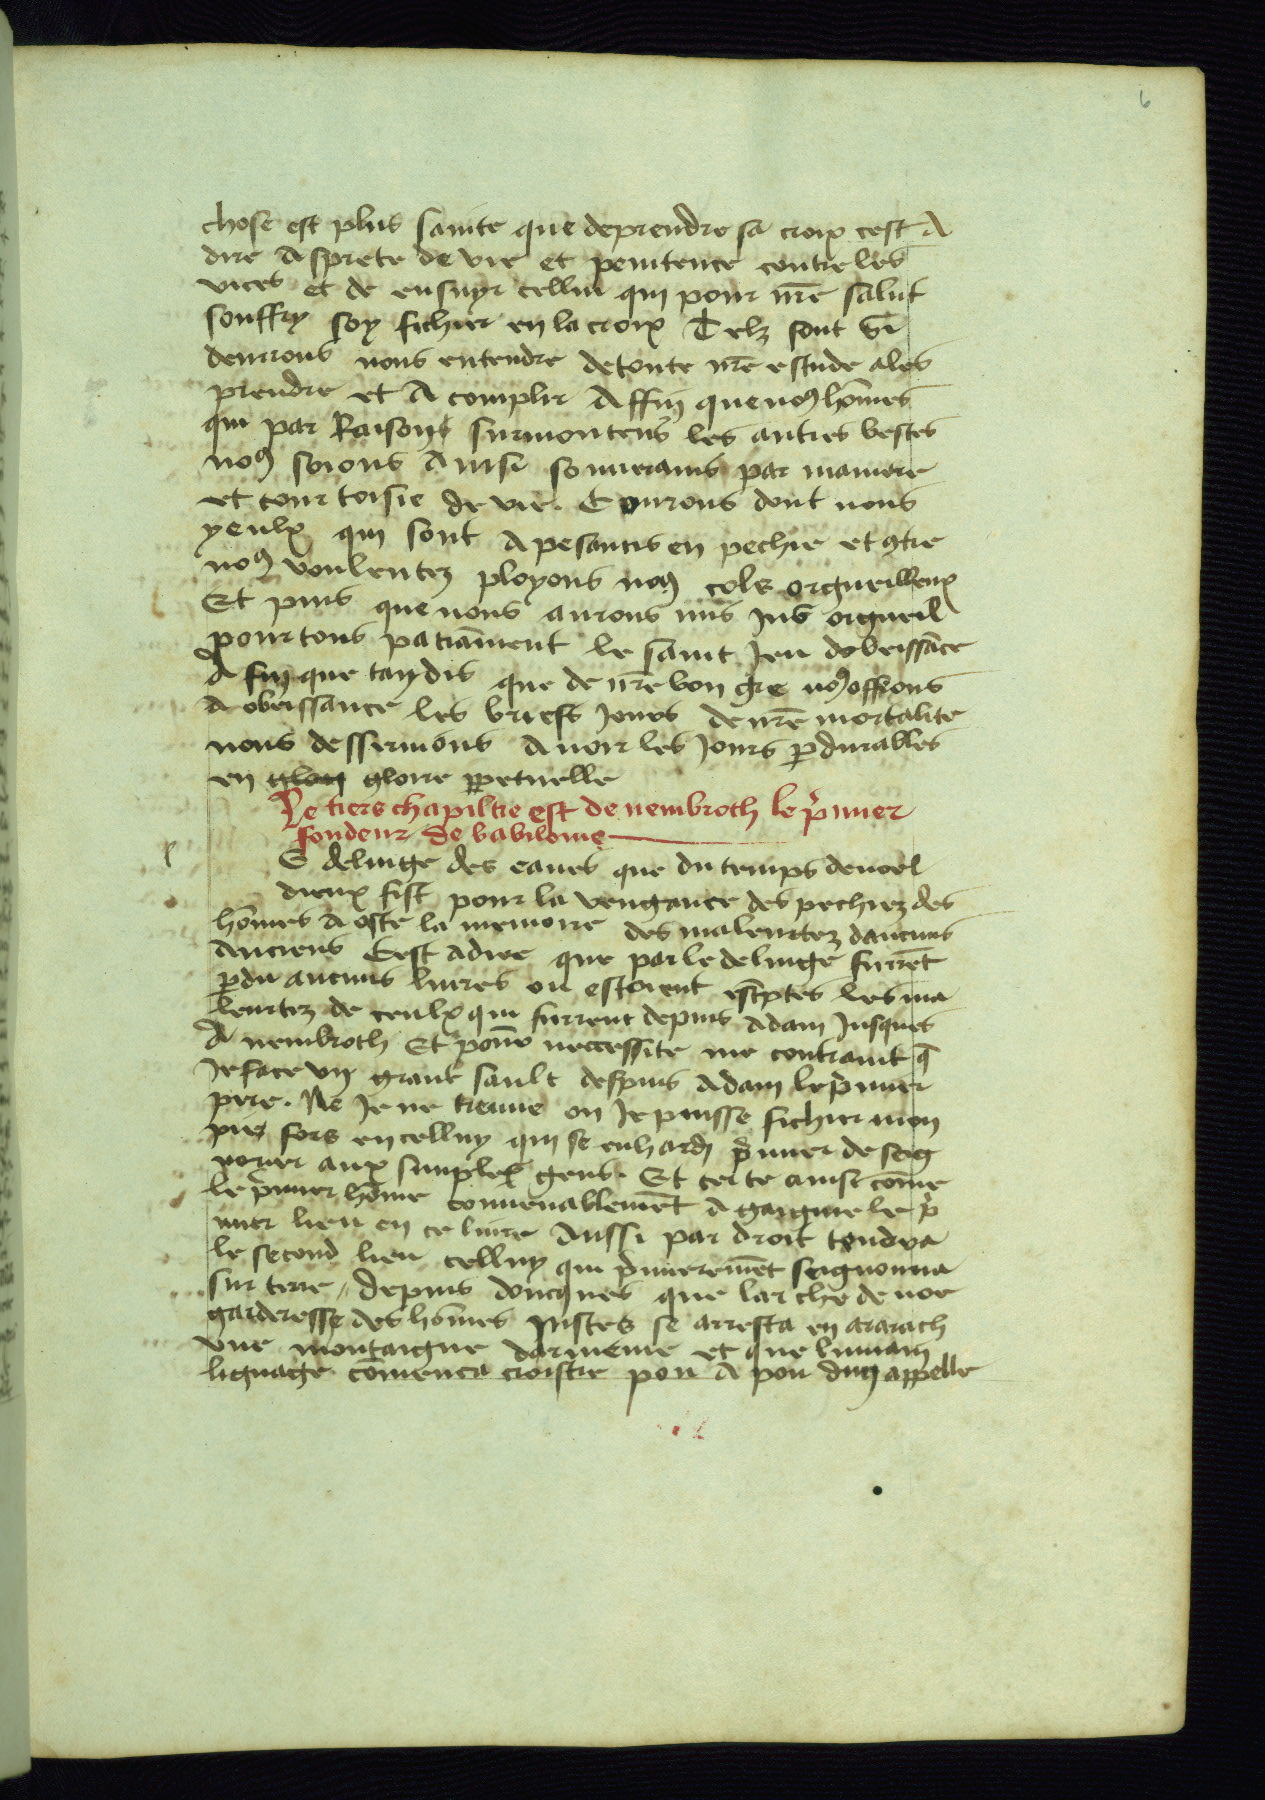 6
chose est plus sainte que deprendre sa croix cest A
dire Asprete de vie et penitence contre les
vices et de ensuyr cellui qui pour nr̄e salut
souffry soy fichier en la croix Telz sont
deuirons nous entendre detoute nr̄e estude ales
prendre et A complir Affin que noꝰ hōmes
qui par Raison surmontens les autres bestes
noꝰ soions Ainsi souuerains par maniere
et courtoisie de vie. Courons dont nous
yeulx qui sont Apesantis en pechie et ꝯtre
noꝰ voulentez ployons noꝰ cols orgueilleux
Et puis que nous aurons mis jus orgueil
pourtons paciāment le saint Jeu dobeissāce
A fin que tandis que de nr̄e bon gre noꝰ offrons
A obeissance les briefs Jours de nr̄e mortalite
nous desseruions Auoir les Jours ꝑdurables
en gloire ꝑpetuelle
Le tiers chapiltre est de nembroth le p̄mier
fondeur de babiloine
l
E deluige des eaues que du temps de noel
dieux fist pour la vengance des pechiez des
hōmes A oste la memoire des maleurtez daucuns
Anciens Cest adire que par le deluige furēt
ꝑdu aucuns liures ou estoient escptes les ma
leurtez de ceulx qui furrent depuis Adam Jusques
A nembroth Et pour neccessite me contraint q̄
Je face vng grant sault despuis Adam le p̄mier
pere. Ne Je ne treuue ou Je puisse fichier mon
pie fors en celluy qui se enhardi p̄mier de seig
norier aux simplex gens. Et certe ainsi cōme
le p̄mier hōme conuenablemēt A gaignie le p̄
mier lieu en ce liure Aussi par droit tendra
le second lieu celluy qui p̄mieremēt seignouria
sur terre / depuis doncques que larche de noe
garderesse des hōmes Justes se arresta en ararach
vne montaigne darmenie et que lumain
lignage cōmenca croistre pou A pou dung appelle